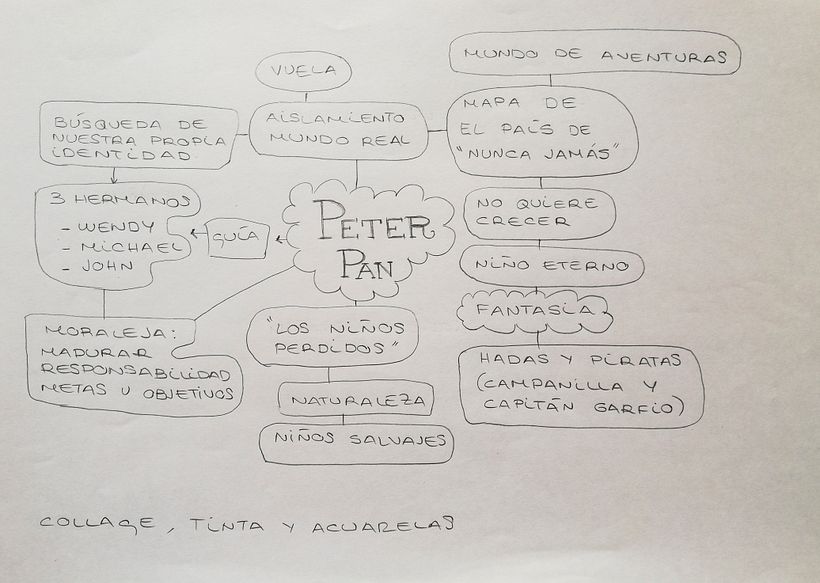 MUNDO DE AVENTURAS
VUELA
BÚSQUEDA DE
NUESTRA PROPIA
IDENTIDAD
AISLAMIENTO
MUNDO REAL
MAPA DE
EL PAÍS DE
"NUNCA JAMÁS"
3 HERMANOS
- WENDY
- MICHAEL
- JOHN
GUÍA
PETER
PAN
NO QUIERE
CRECER
NIÑO ETERNO
FANTASIA
HADAS Y PIRATAS
(CAMPANILLA Y
CAPITÁN GARFIO)
MORALEJA:
MADURAR
RESPONSABILIDAD
METAS U OBJETIVOS
"LOS NIÑOS
PERDIDOS"
NATURALEZA
NIÑOS SALVAJES
COLLAGE, TINTA Y ACUARELAS